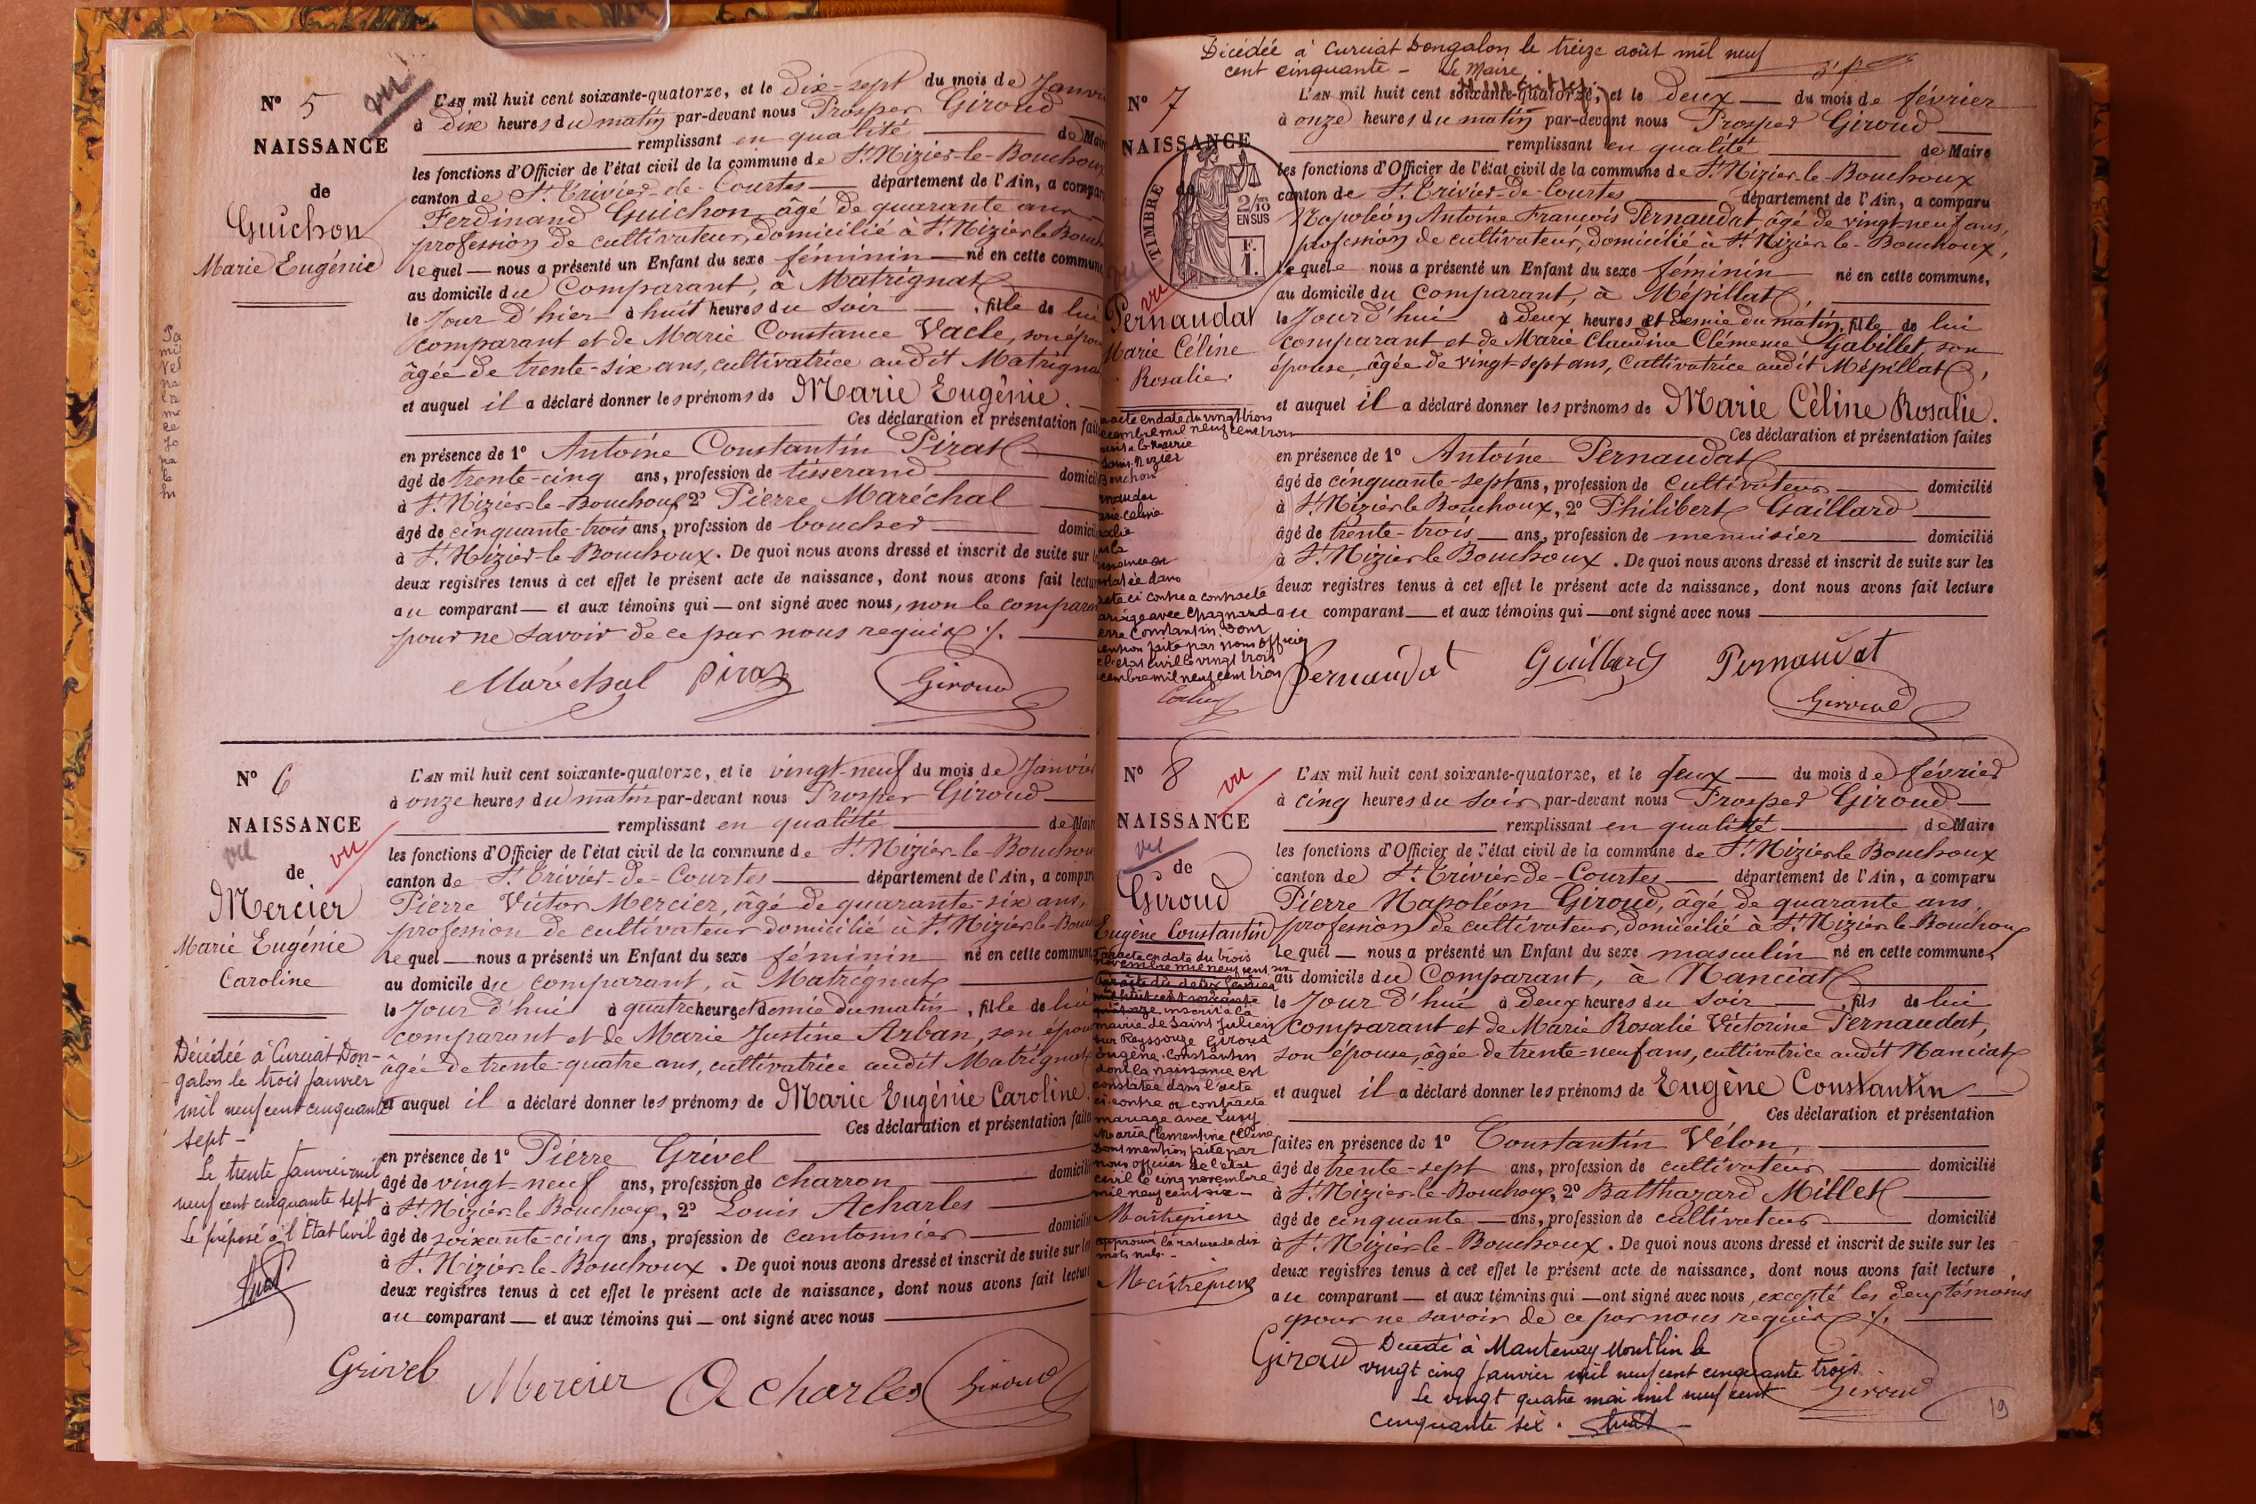 N° 5
NAISSANCE
de
Guichon
Marie Eugénie
vu
L'AN mil huit cent soixante-quatorze, et le dix-sept du mois de Janvi
à dix heures du matin par-devant nous Prosper Giroud
remplissant en qualité de Mair
les fonctions d'Officier de l'état civil de la commune de St Nizier-le-Bouchoux
canton de St Trivier-de-Courtes département de l'Ain, a compar
Ferdinand Guichon, âgé de quarante ans
profession de cultivateur, domicilié à St Nizier le Bouch
lequel nous a présenté un Enfant du sexe féminin né en cette commune
au domicile du Comparant, à Matrignat
le Jour d'hier à huit heures du soir, fille de lui
comparant et de Marie Constance Vacle, son épou
âgée de trente-six ans, cultivatrice audit Matrigna
et auquel il a déclaré donner les prénoms de Marie Eugénie.
Ces déclaration et présentation fait
en présence de 1° Antoine Constantin Pirat
âgé de trente-cinq ans, profession de tisserand domicil
à St Nizier-le-Bouchoux, 2° Pierre Maréchal
âgé de cinquante-trois ans, profession de boucher domici
à St Nizier-le-Bouchoux. De quoi nous avons dressé et inscrit de suite sur
deux registres tenus à cet effet le présent acte de naissance, dont nous avons fait lectu
au comparant et aux témoins qui ont signé avec nous, non le compara
pour ne savoir de ce par nous requis ./.
Maréchal Pirat Giroud
N° 6
NAISSANCE
vu
vu
de
Mercier
Marie Eugénie
Caroline
Décédée à Curciat Don-
galon le trois Janvier
mil neuf cent cinquante
sept -
Le trente Janvier mil
neuf cent cinquante sept
Le préposé à l'Etat Civil
L'AN mil huit cent soixante-quatorze, et le vingt-neuf du mois de Janvier
à onze heures du matin par-devant nous Prosper Giroud
remplissant en qualité de Mair
les fonctions d'Officier de l'état civil de la commune de St Nizier-le-Bouchou
canton de St Trivier-de-Courtes département de l'Ain, a compar
Pierre Victor Mercier, âgé de quarante-six ans,
profession de cultivateur domicilié à St Nizier-le-Bouc
lequel nous a présenté un Enfant du sexe féminin né en cette commune
au domicile du comparant, à Matrignat
le Jour d'hui à quatre heures et demie du matin, fille de lui
comparant et de Marie Justine Arban, son épou
âgée de trente-quatre ans, cultivatrice audit Matrignat
et auquel il a déclaré donner les prénoms de Marie Eugénie Caroline.
Ces déclaration et présentation faite
en présence de 1° Pierre Grivel
âgé de vingt-neuf ans, profession de charron domicili
à St Nizier-le-Bouchoux, 2° Louis Acharles
âgé de soixante-cinq ans, profession de cantonnier domicili
à St Nizier-le-Bouchoux. De quoi nous avons dressé et inscrit de suite sur les
deux registres tenus à cet effet le présent acte de naissance, dont nous avons fait lectur
au comparant et aux témoins qui ont signé avec nous
Grivel Mercier Acharles Giroud
Décédée à Curciat Dongalon le treize août mil neuf
cent cinquante - Le Maire,
N° 7
NAISSANCE
de
TIMBRE
2/10
EN SUS
F.
1.
vu
Pernaudat
Marie Céline
Rosalie.
acte en date du vingt trois
cembre mil neuf cent trois
Bouchoux
arie Céline
ci contre a contracté
ariage avec Chagnard
erre Constantin. Dont
ention faite par nous officier
l'état civil le vingt trois
cembre mil neuf cent trois
L'AN mil huit cent soixante-quatorze, et le deux du mois de février
à onze heures du matin par-devant nous Prosper Giroud
remplissant en qualité de Maire
les fonctions d'Officier de l'état civil de la commune de St Nizier-le-Bouchoux
canton de St Trivier-de-Courtes département de l'Ain, a comparu
Napoléon Antoine François Pernaudat âgé de vingt-neuf ans,
profession de cultivateur, domicilié à St Nizier-le-Bouchoux,
lequel nous a présenté un Enfant du sexe féminin né en cette commune,
au domicile du Comparant, à Mépillat,
le Jour d'hui à deux heures et demie du matin, fille de lui
comparant et de Marie Claudine Clémence Gabillet, son
épouse, âgée de vingt-sept ans, Cultivatrice audit Mépillat,
et auquel il a déclaré donner les prénoms de Marie Céline Rosalie.
Ces déclaration et présentation faites
en présence de 1° Antoine Pernaudat
âgé de cinquante-sept ans, profession de cultivateur domicilié
à St Nizier le Bouchoux, 2° Philibert Gaillard
âgé de trente-trois ans, profession de menuisier domicilié
à St Nizier le Bouchoux. De quoi nous avons dressé et inscrit de suite sur les
deux registres tenus à cet effet le présent acte de naissance, dont nous avons fait lecture
au comparant et aux témoins qui ont signé avec nous
Pernaudat Gaillard Pernaudat
Giroud
N° 8
vu
NAISSANCE
vu
de
Giroud
Eugène Constantin
acte en date du trois
novembre mil neuf cent six
par acte du deux février
mil huit cent soixante
quatorze inscrit à la
mairie de Saint Julien
sur Reyssouze Giroud
Eugène Constantin
dont la naissance est
constatée dans l'acte
ci-contre a contracté
mariage avec Lugy
Maria Clementine Céline
Dont mention faite par
nous officier de l'état
civil le cinq novembre
mil neuf cent six -
Maîtrepierre
approuvé la rature de dix
mots nuls. -
Maîtrepierre
L'AN mil huit cent soixante-quatorze, et le deux du mois de février
à cinq heures du soir par-devant nous Prosper Giroud
remplissant en qualité de Maire
les fonctions d'Officier de l'état civil de la commune de St Nizier le Bouchoux
canton de St Trivier-de-Courtes département de l'Ain, a comparu
Pierre Napoléon Giroud, âgé de quarante ans,
profession de cultivateur, domicilié à St Nizier-le-Bouchoux
lequel nous a présenté un Enfant du sexe masculin né en cette commune,
au domicile du Comparant, à Nanciat
le Jour d'hui à deux heures du soir, fils de lui
comparant et de Marie Rosalie Victorine Pernaudat,
son épouse, âgée de trente-neuf ans, cultivatrice audit Nanciat
et auquel il a déclaré donner les prénoms de Eugène Constantin
Ces déclaration et présentation
faites en présence de 1° Constantin Vélon,
âgé de trente-sept ans, profession de cultivateur domicilié
à St Nizier-le-Bouchoux, 2° Balthazard Millet
âgé de cinquante ans, profession de cultivateur domicilié
à St Nizier-le-Bouchoux. De quoi nous avons dressé et inscrit de suite sur les
deux registres tenus à cet effet le présent acte de naissance, dont nous avons fait lecture
au comparant et aux témoins qui ont signé avec nous, excepté les deux témoins
pour ne savoir de ce par nous requis ./.
Giroud Décédé à Mantenay Montlin le
vingt cinq Janvier mil neuf cent cinquante trois.
Le vingt quatre mai mil neuf cent Giroud
cinquante six.
19